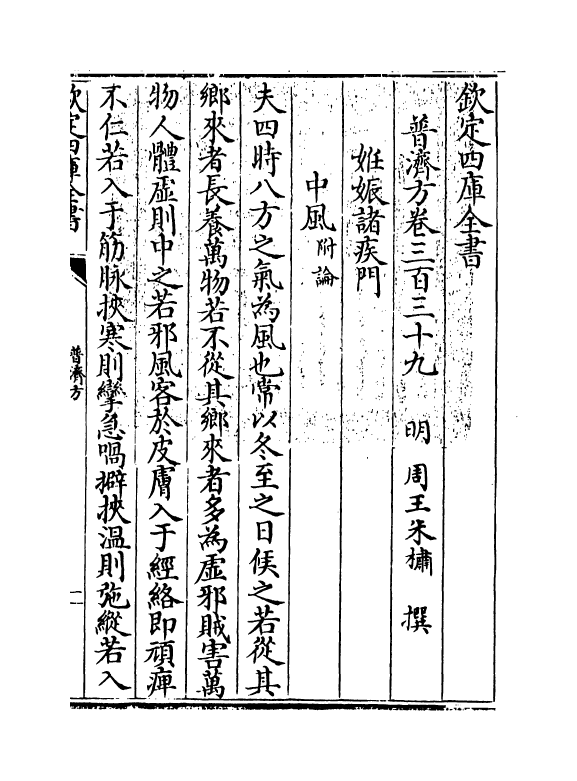 欽定四庫全書
普濟方卷三百三十九　明　周王朱橚　撰
姙娠諸疾門
中風附論
夫四時八方之氣為風也常以冬至之日候之若從其
鄉來者長養萬物若不從其鄉來者多為虛邪賊害萬
物人體虛則中之若邪風客於皮膚入于經絡即頑痺
不仁若入于筋脉挾寒則攣急喎擗挾温則弛縱若入
欽定四庫全書
普濟方
一